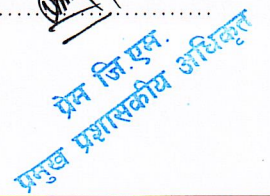 प्रेम जि.एम.
प्रमुख प्रशासकीय अधिकृत